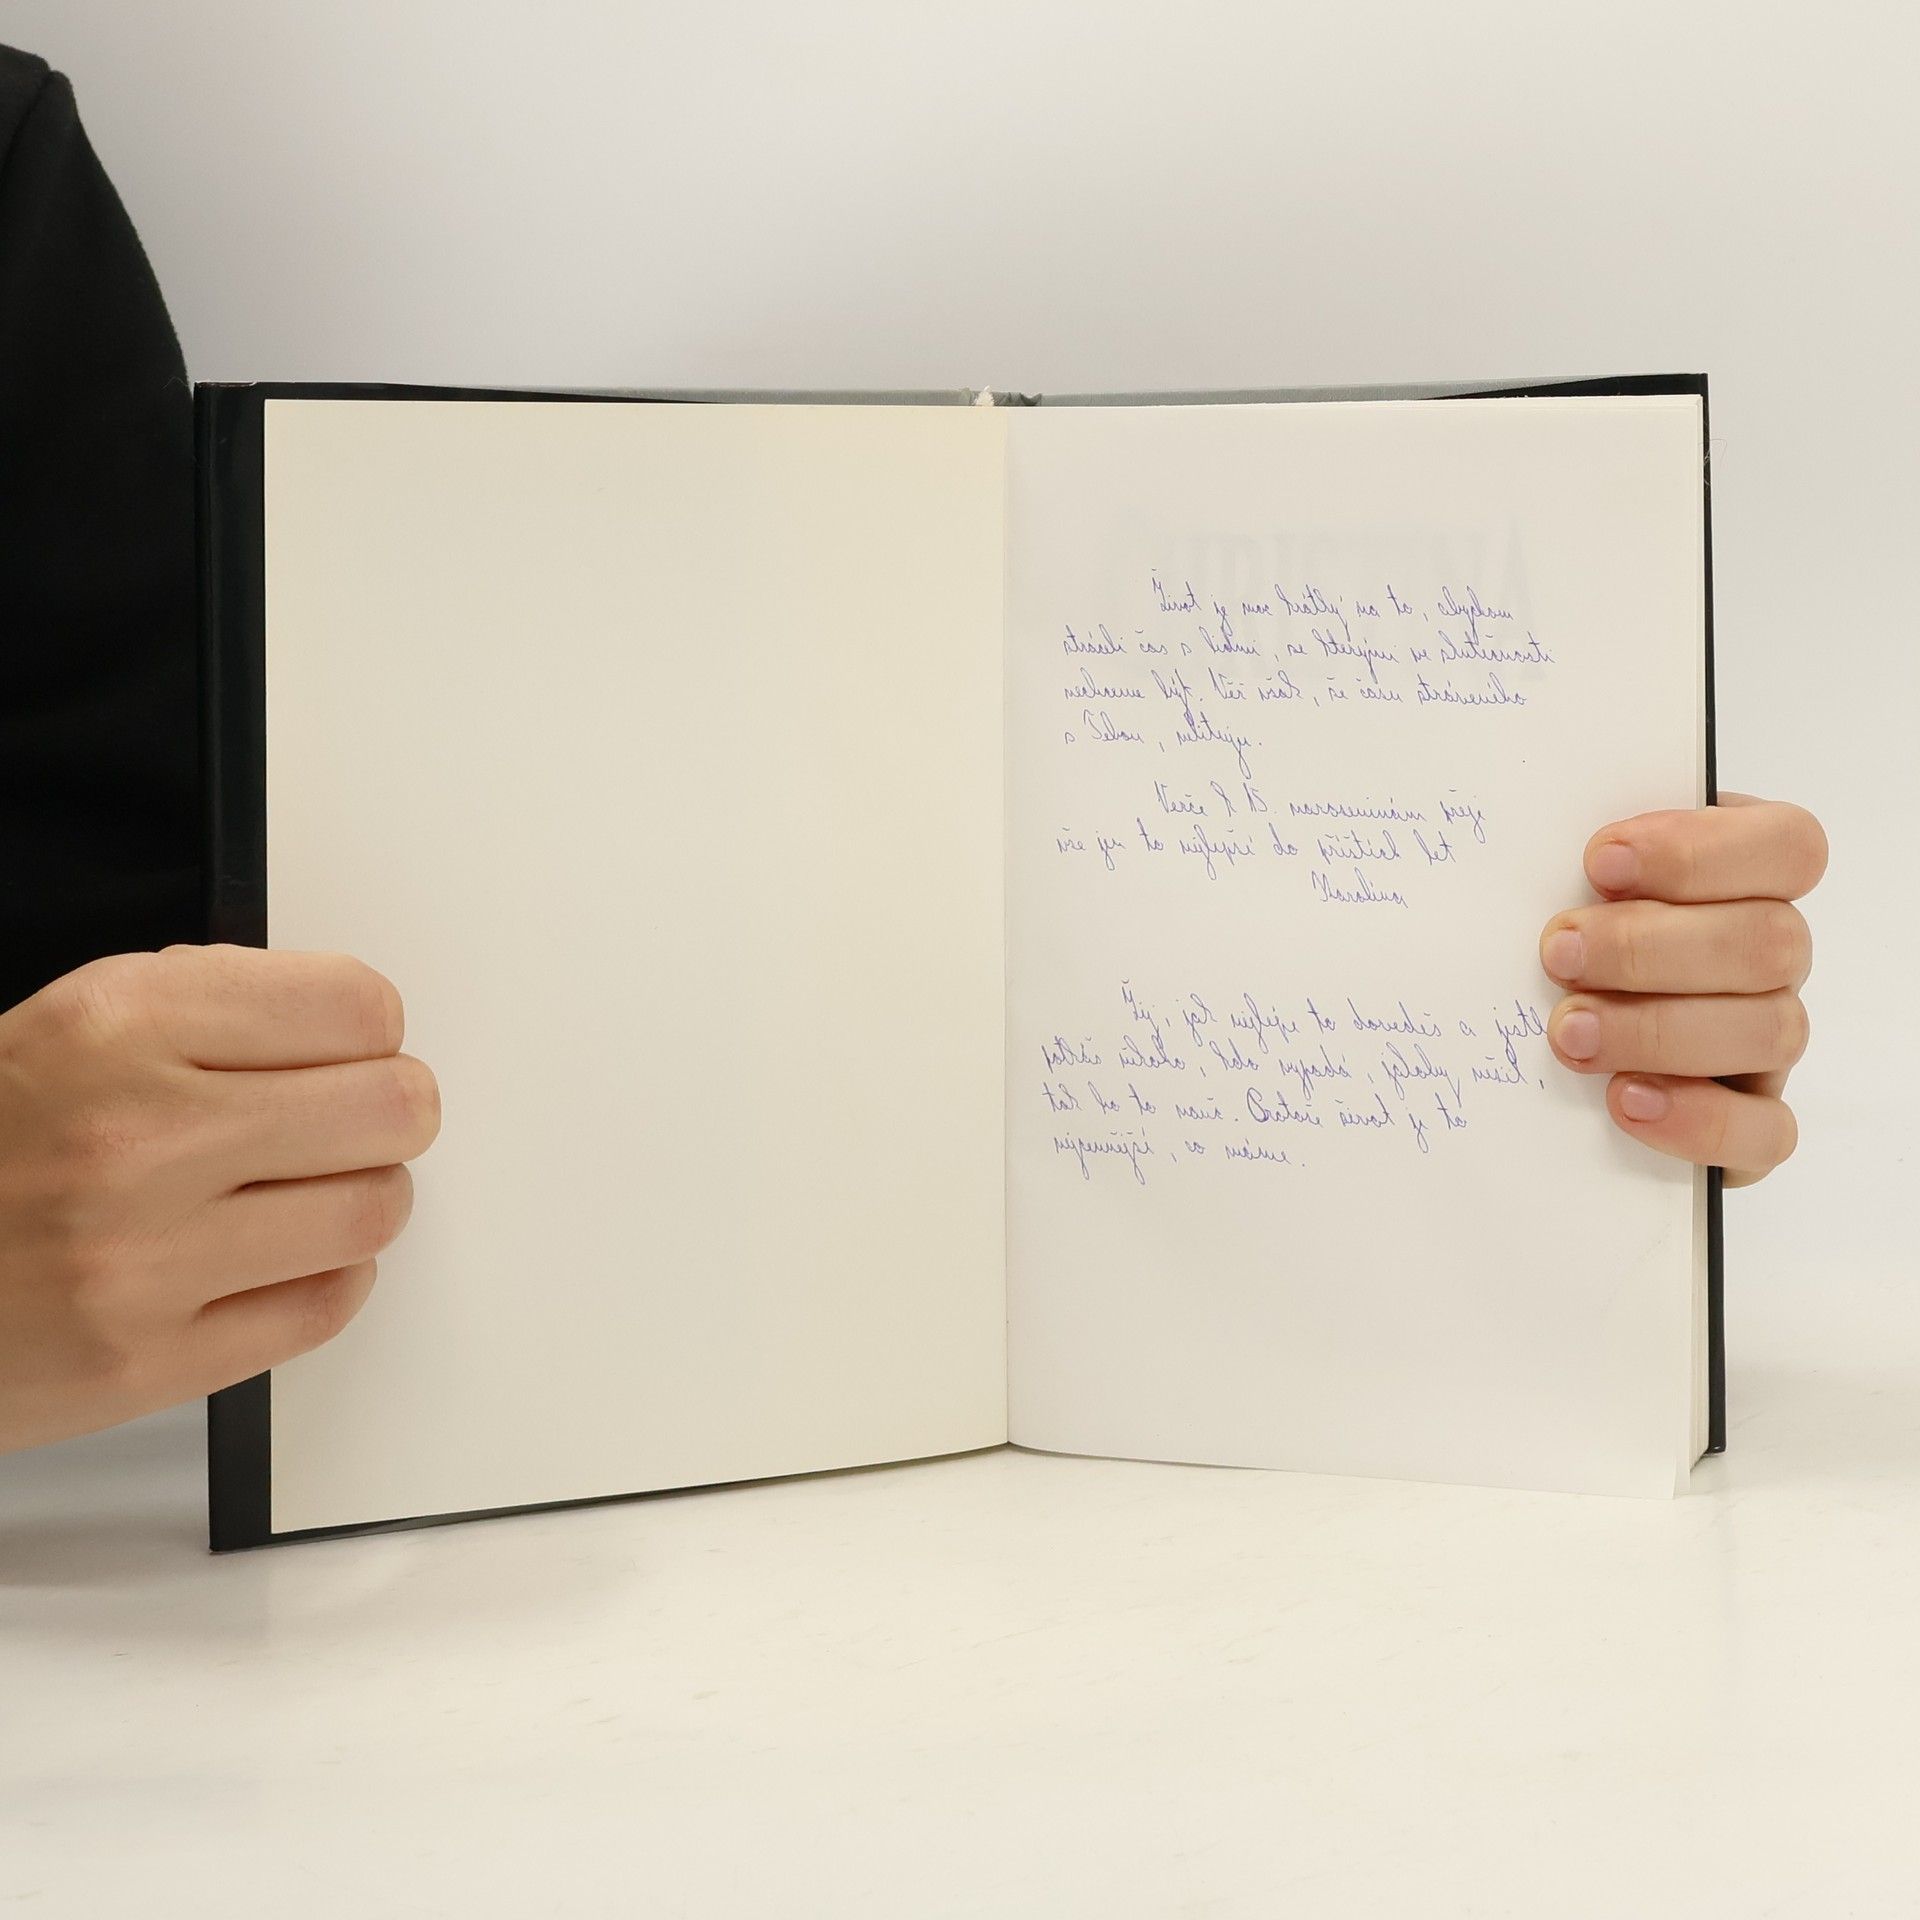 Život je moc krátký na to, abychom
strávili čas s lidmi, se kterými ve skutečnosti
nechceme být. Věř však, že času stráveného
s Tebou, nelituji.
Verče k 15. narozeninám přeji
vše jen to nejlepší do příštích let
Karolína
Žij, jak nejlépe to dovedeš a jestl
potkáš někoho, kdo vypadá, jakoby nežil,
tak ho to nauč. Protože život je to
nejcennější, co máme.